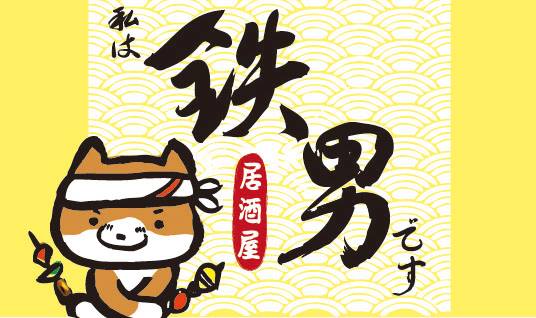 私は
鉄男
居酒屋
です